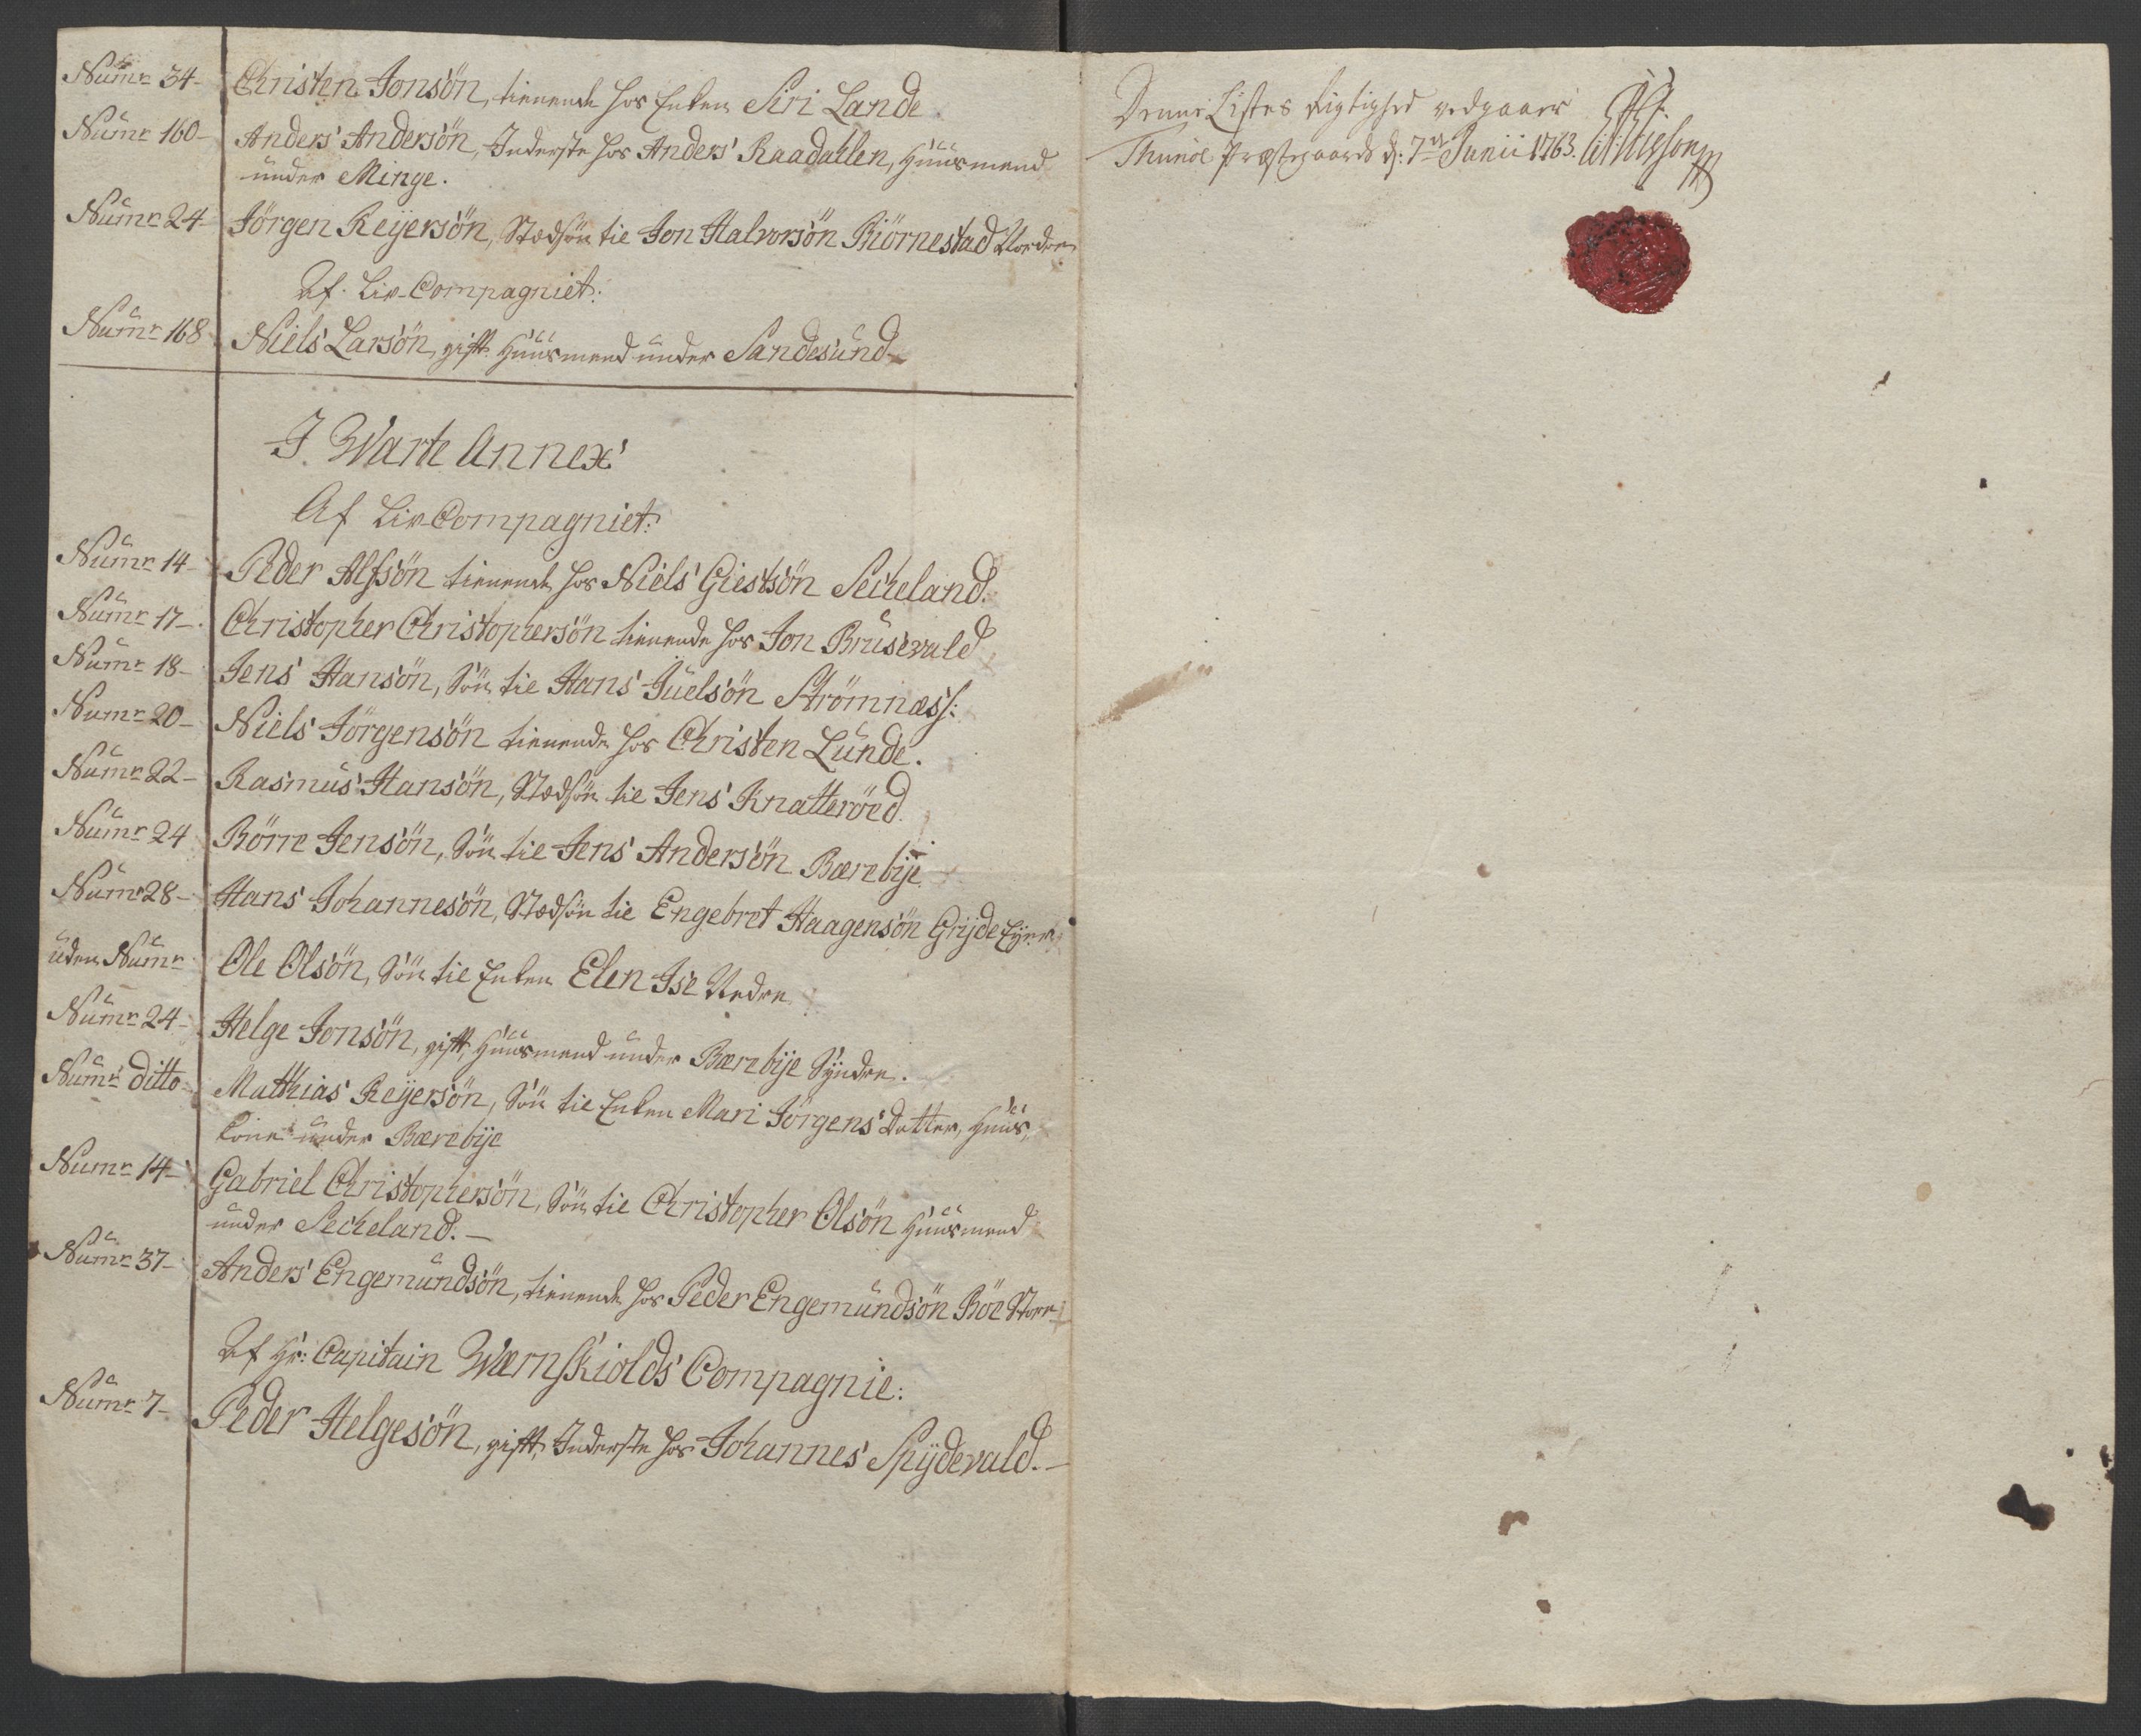 Numr 34- Christen Jonsön, tienende hos Enken Siri Lande.
Numr 160- Anders Andersön, Inderste hos Anders Raadahlen, Huusmend
under Minge.
Numr 24- Jörgen Reÿersön, Stedsön til Jon Halvorsön Biörnestad Nordre
Af Liv-Compagniet:
Numr 168 Niels Larsön, gift Huusmend under Sandesund
I Warte Annex
Af Liv-Compagniet:
Numr 14- Peder Alfsön tienende hos Niels Giestsön Secheland.
Numr 17- Christopher Christophersön tienende hos Jon Brusevald
Numr 18- Jens Hansön, Sön til Hans Juelsön Strömnæss:
Numr 20- Niels Jörgensön tienende hos Christen Lunde.
Numr 22- Rasmus Hansön, Stedsön til Jens Knatteröed.
Numr 24 Börre Jensön, Sön til Jens Andersön Bærebÿe
Numr 28- Hans Johannesön, Stedsön til Engebret Haagensön Grÿde
uden Numr Ole Olsön, Sön til Enken Elen Ise Nedre
Numr 24- Helge Jonsön, gift, Huusmend under Bærebÿe Sÿndre.
Numr ditto- Matthias Reÿersön, Sön til Enken Mari Jörgens Datter, Huus-
kone under Bærebÿe
Numr 14- Gabriel Christophersön, Sön til Christopher Olsön Huusmend
under Secheland.-
Numr 37- Anders Engemundsön, tienende hos Peder Engemundsön Böe Store
Af Hr: Capitain Wærnskiolds Compagnie:
Numr 7- Peder Helgesön, gift, Inderste hos Johannes Spÿdevald.-
Denne Listes Rigtighed vedgaaer
Thunöe Præstegaard d: 7de Junii 1763.